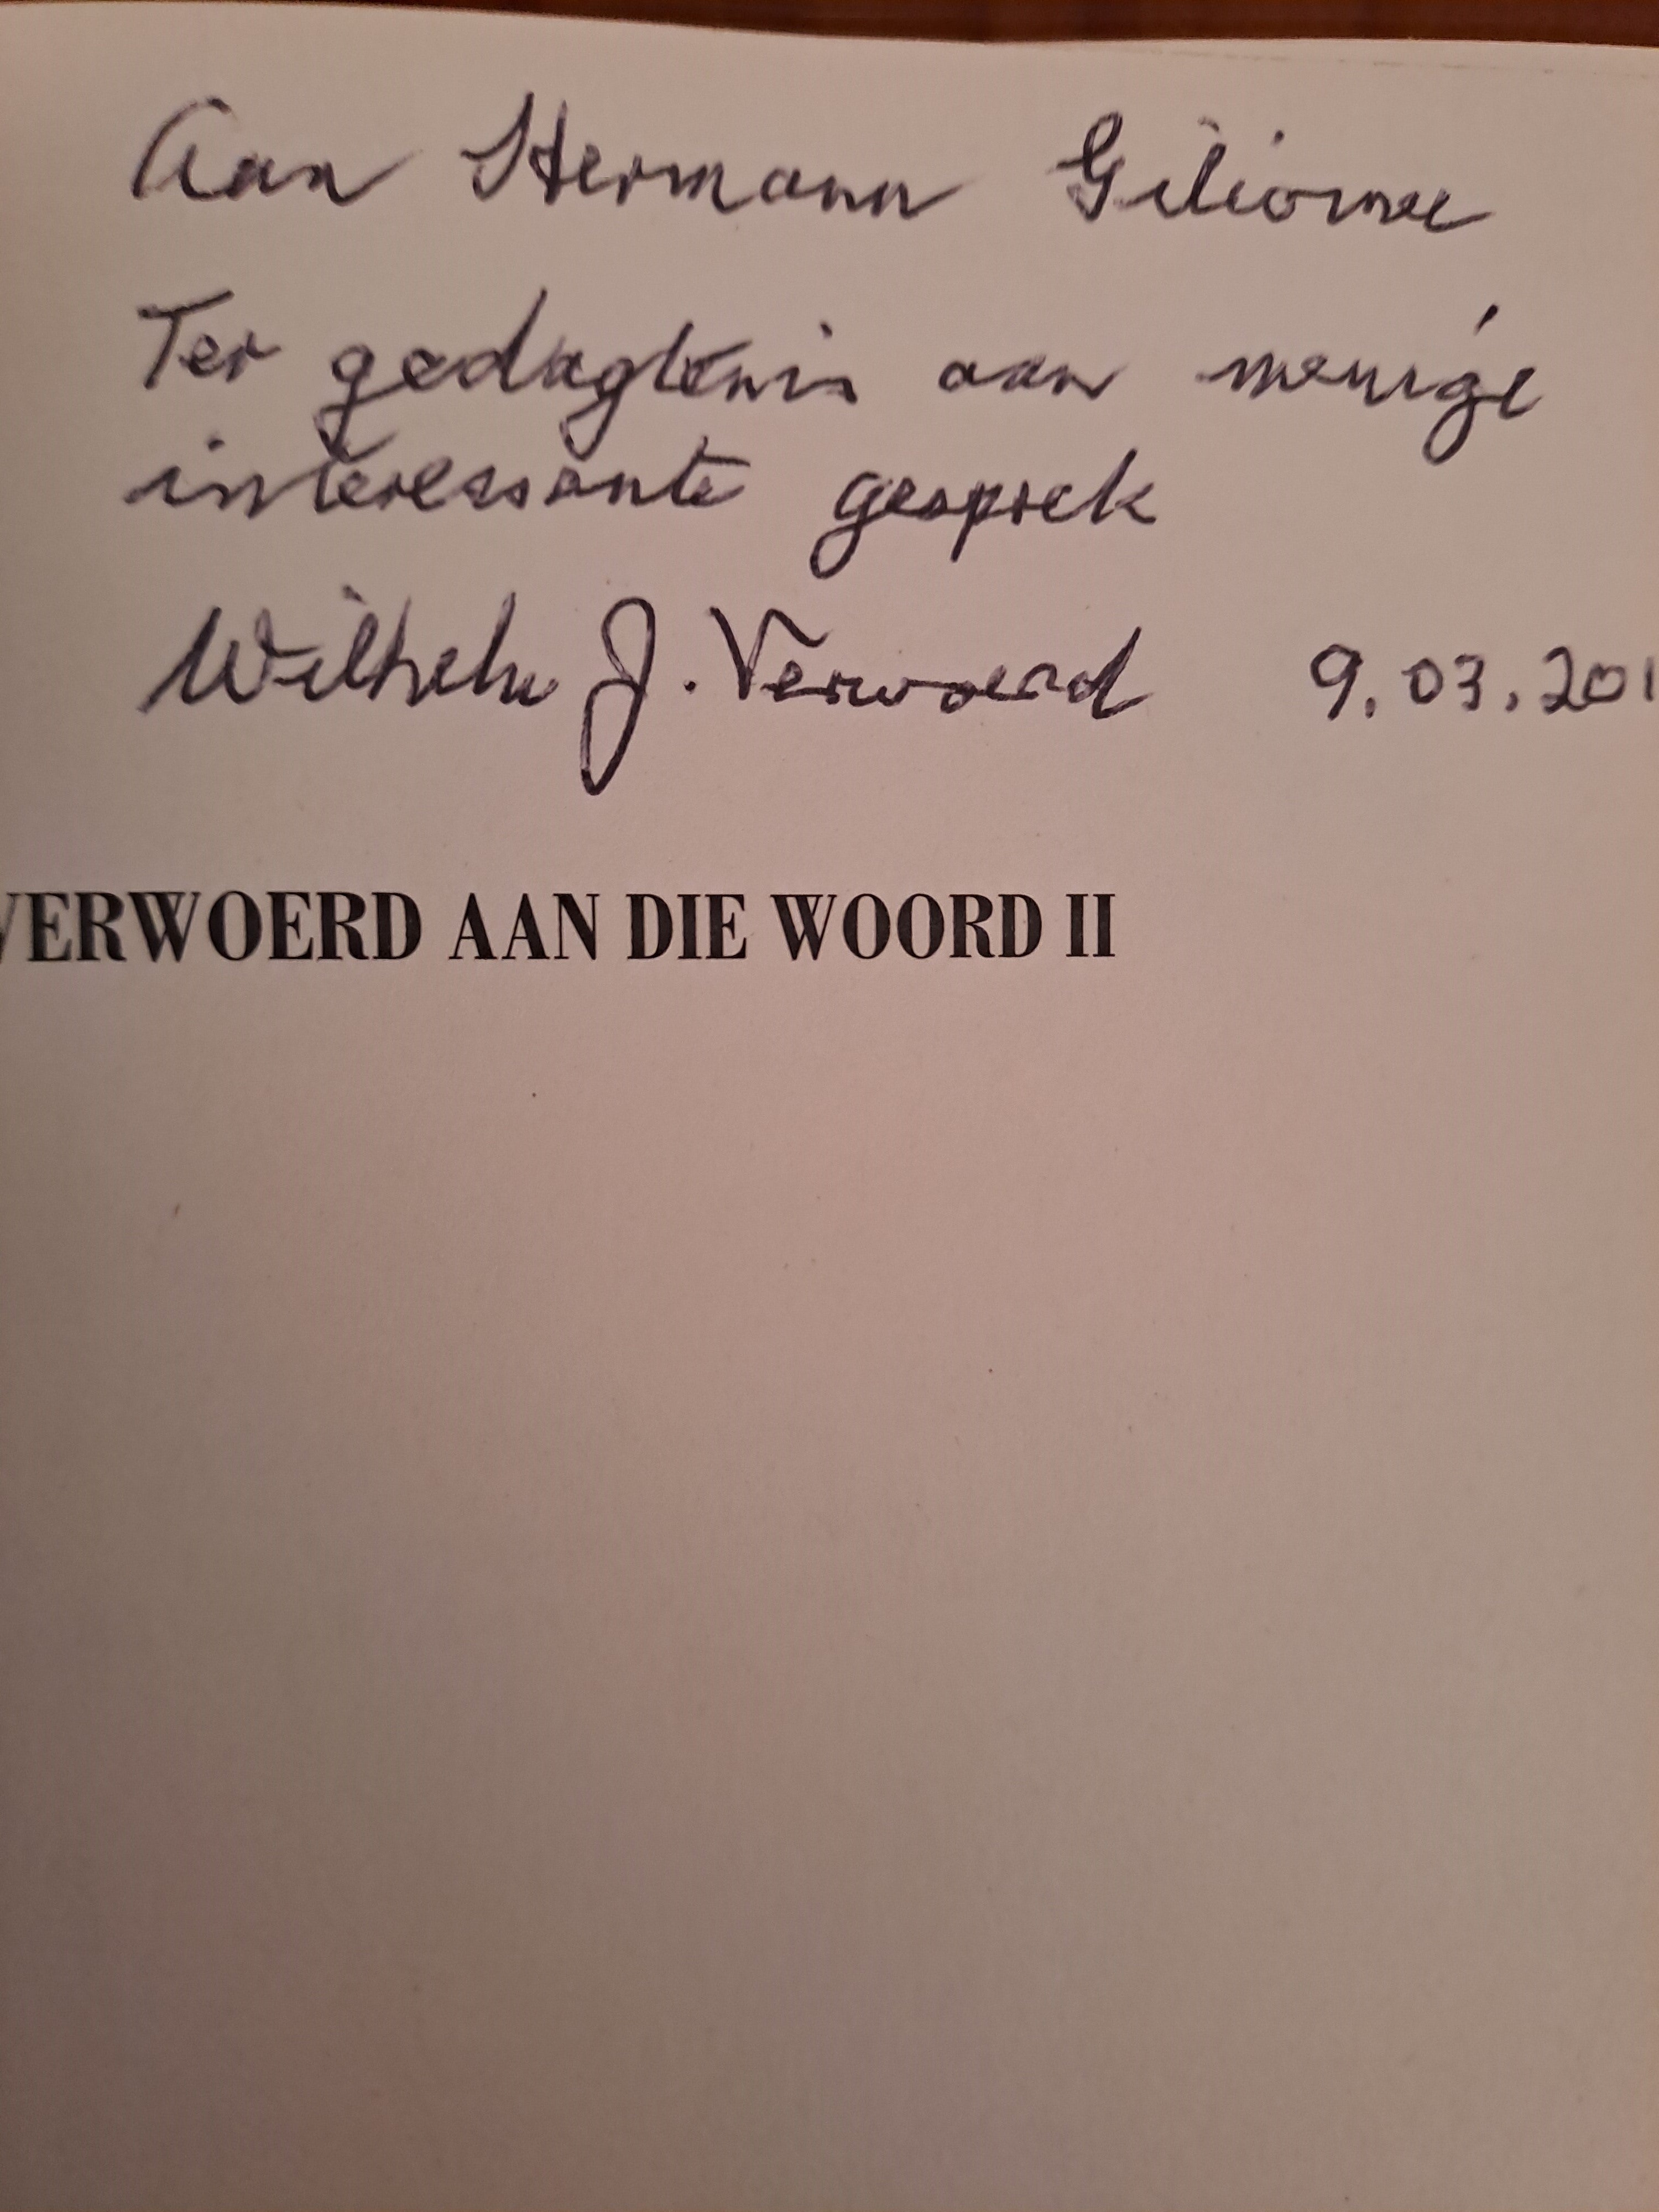 Aan Hermann Giliomee
Ter gedagtenis aan menige
interessante gesprek
Wilhelm J. Verwoerd 9.03.201
VERWOERD AAN DIE WOORD II